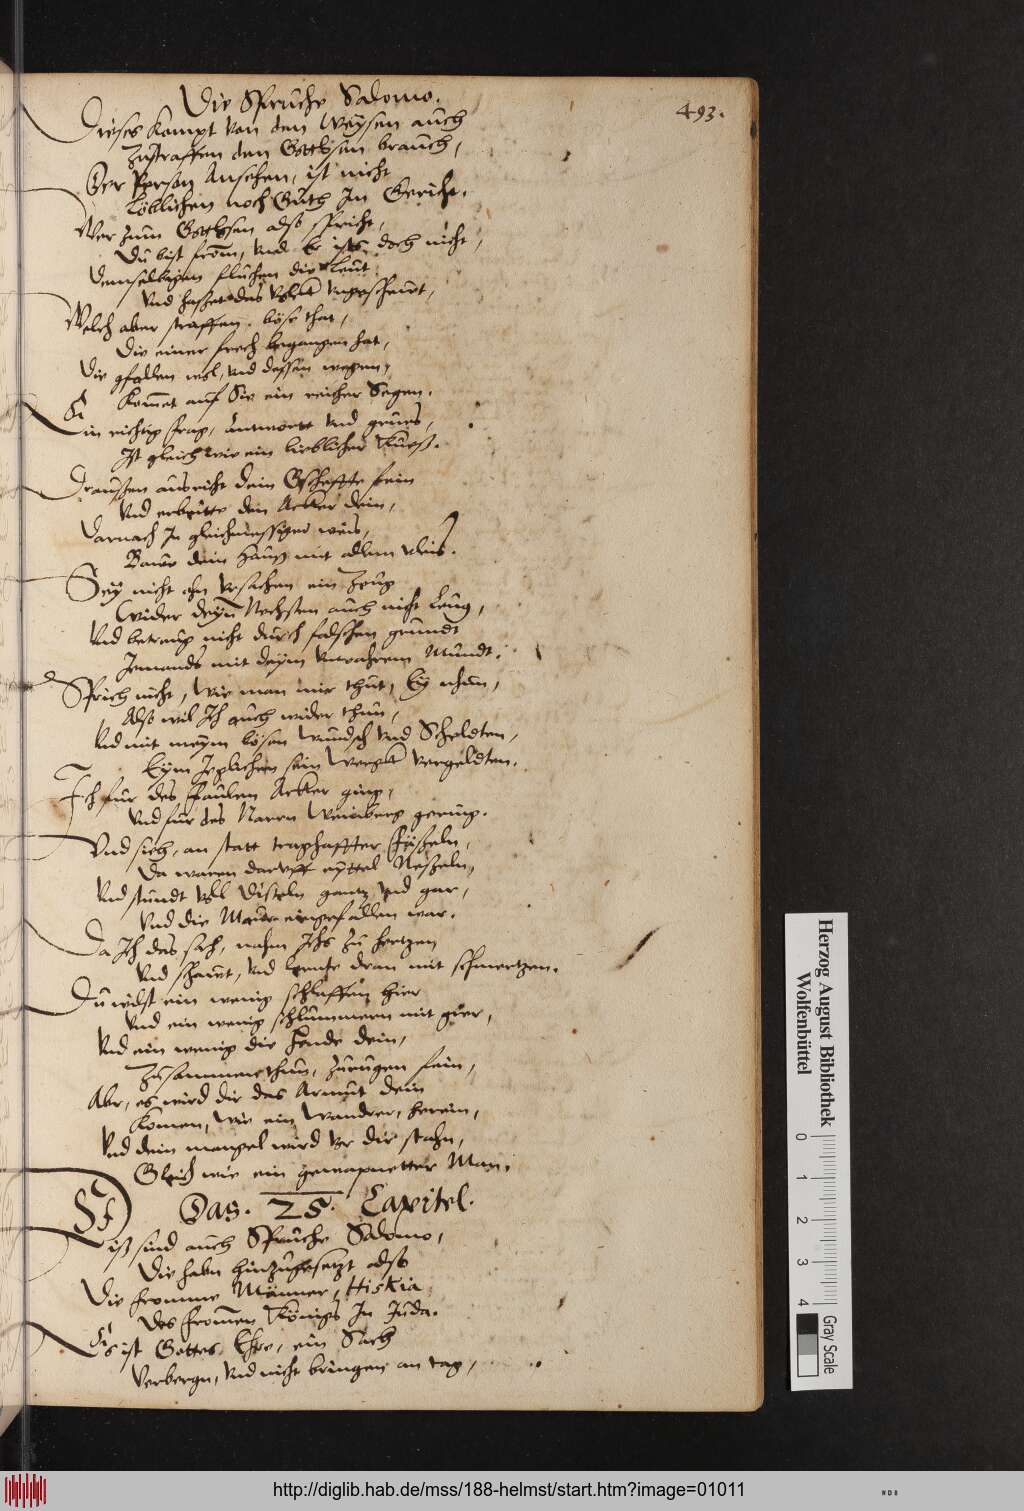 Die Sprüche Salomo.
493.
Dieses kompt von den Weysen auch
Zustraffen den Gottlosen brauch,
Der Person Ansehen, ist nicht
Löblichen noch Guth In Gericht.
Wer zum Gottlosen also spricht,
Du bist from, vnd Er ists doch nicht,
Demselbigen fluchen die Leut
vnd hasset das volck
Welch aber straffen böse that,
Die einer frech begangen hat,
Die gfallen wol, vnd dessen wegen,
Kommet auf Sie ein reicher Segen.
Ein richtig frag, antwortt vnd
Ist gleich wie ein lieblicher Kuess.
Draussen ausricht dein Gscheffte fein
Vnd erbeitte den Acker dein,
Darnach In gleichmessiger weis,
Bawe dein Hauss mit allem vleis.
Sey nicht ohn vrsachen ein Zeug
Wider deyn Nechsten auch nicht leug,
Vnd betreug nicht durch falschen grundt
Jemands mit deym vnwahrem Mundt.
Sprich nicht, wie man mir thut, Ey nhun,
Also wil Ich auch wider thun,
Vnd mit meym bösen wundsch vnd Scheldten,
Eym Jeglichen sein Werck vergeldten.
Ich für des Faulen Acker ging,
Vnd für des Narrn Weinberg gering.
Vnd sieh, an statt traghaffter
Da waren darvff eyttel Nesszeln,
Vnd stundt voll Disteln gantz vnd gar,
Vnd die Maure eingefallen war.
Da Ich das sah, nahm Ichs zu hertzen
Vnd schawt, vnd lernte dran mit schmertzen.
Du wilst ein wenig schlaffen hier
Vnd ein wenig schlummern mit gier,
Vnd ein wenig die Hende dein,
Zusammenthun, zurugen fein,
Abr, es wird dir das Armut dein
Komen, wie ein Wandrer, herein,
Vnd dein mangel wird vor dir stahn,
Gleich wie ein gewapnetter Man.
Das. 25. Capitel.
Diss sind auch Sprüche Salomo,
Die habn hinzugesetzt also
Die fromme Männer, Hiskia
Des fromen Königs In Juda.
Es ist Gottes Ehre, ein Sach
Verbergn, vnd nicht bringen an tag,
Herzog August Bibliothek
Wolfenbüttel
0 1 2 3 4
Gray Scale
http://diglib.hab.de/mss/188-helmst/start.htm?image=01011